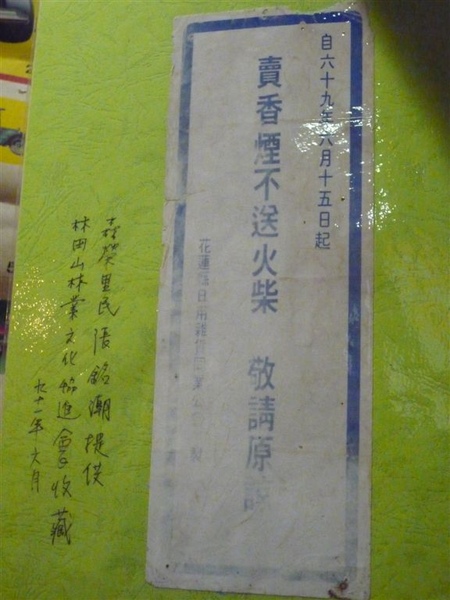 自六十九年六月十五日起
賣香煙不送火柴 敬請原諒
花蓮縣日用雜貨同業公會 製
森榮里民張銘潮提供
林田山林業文化協進會收藏
九十一年六月